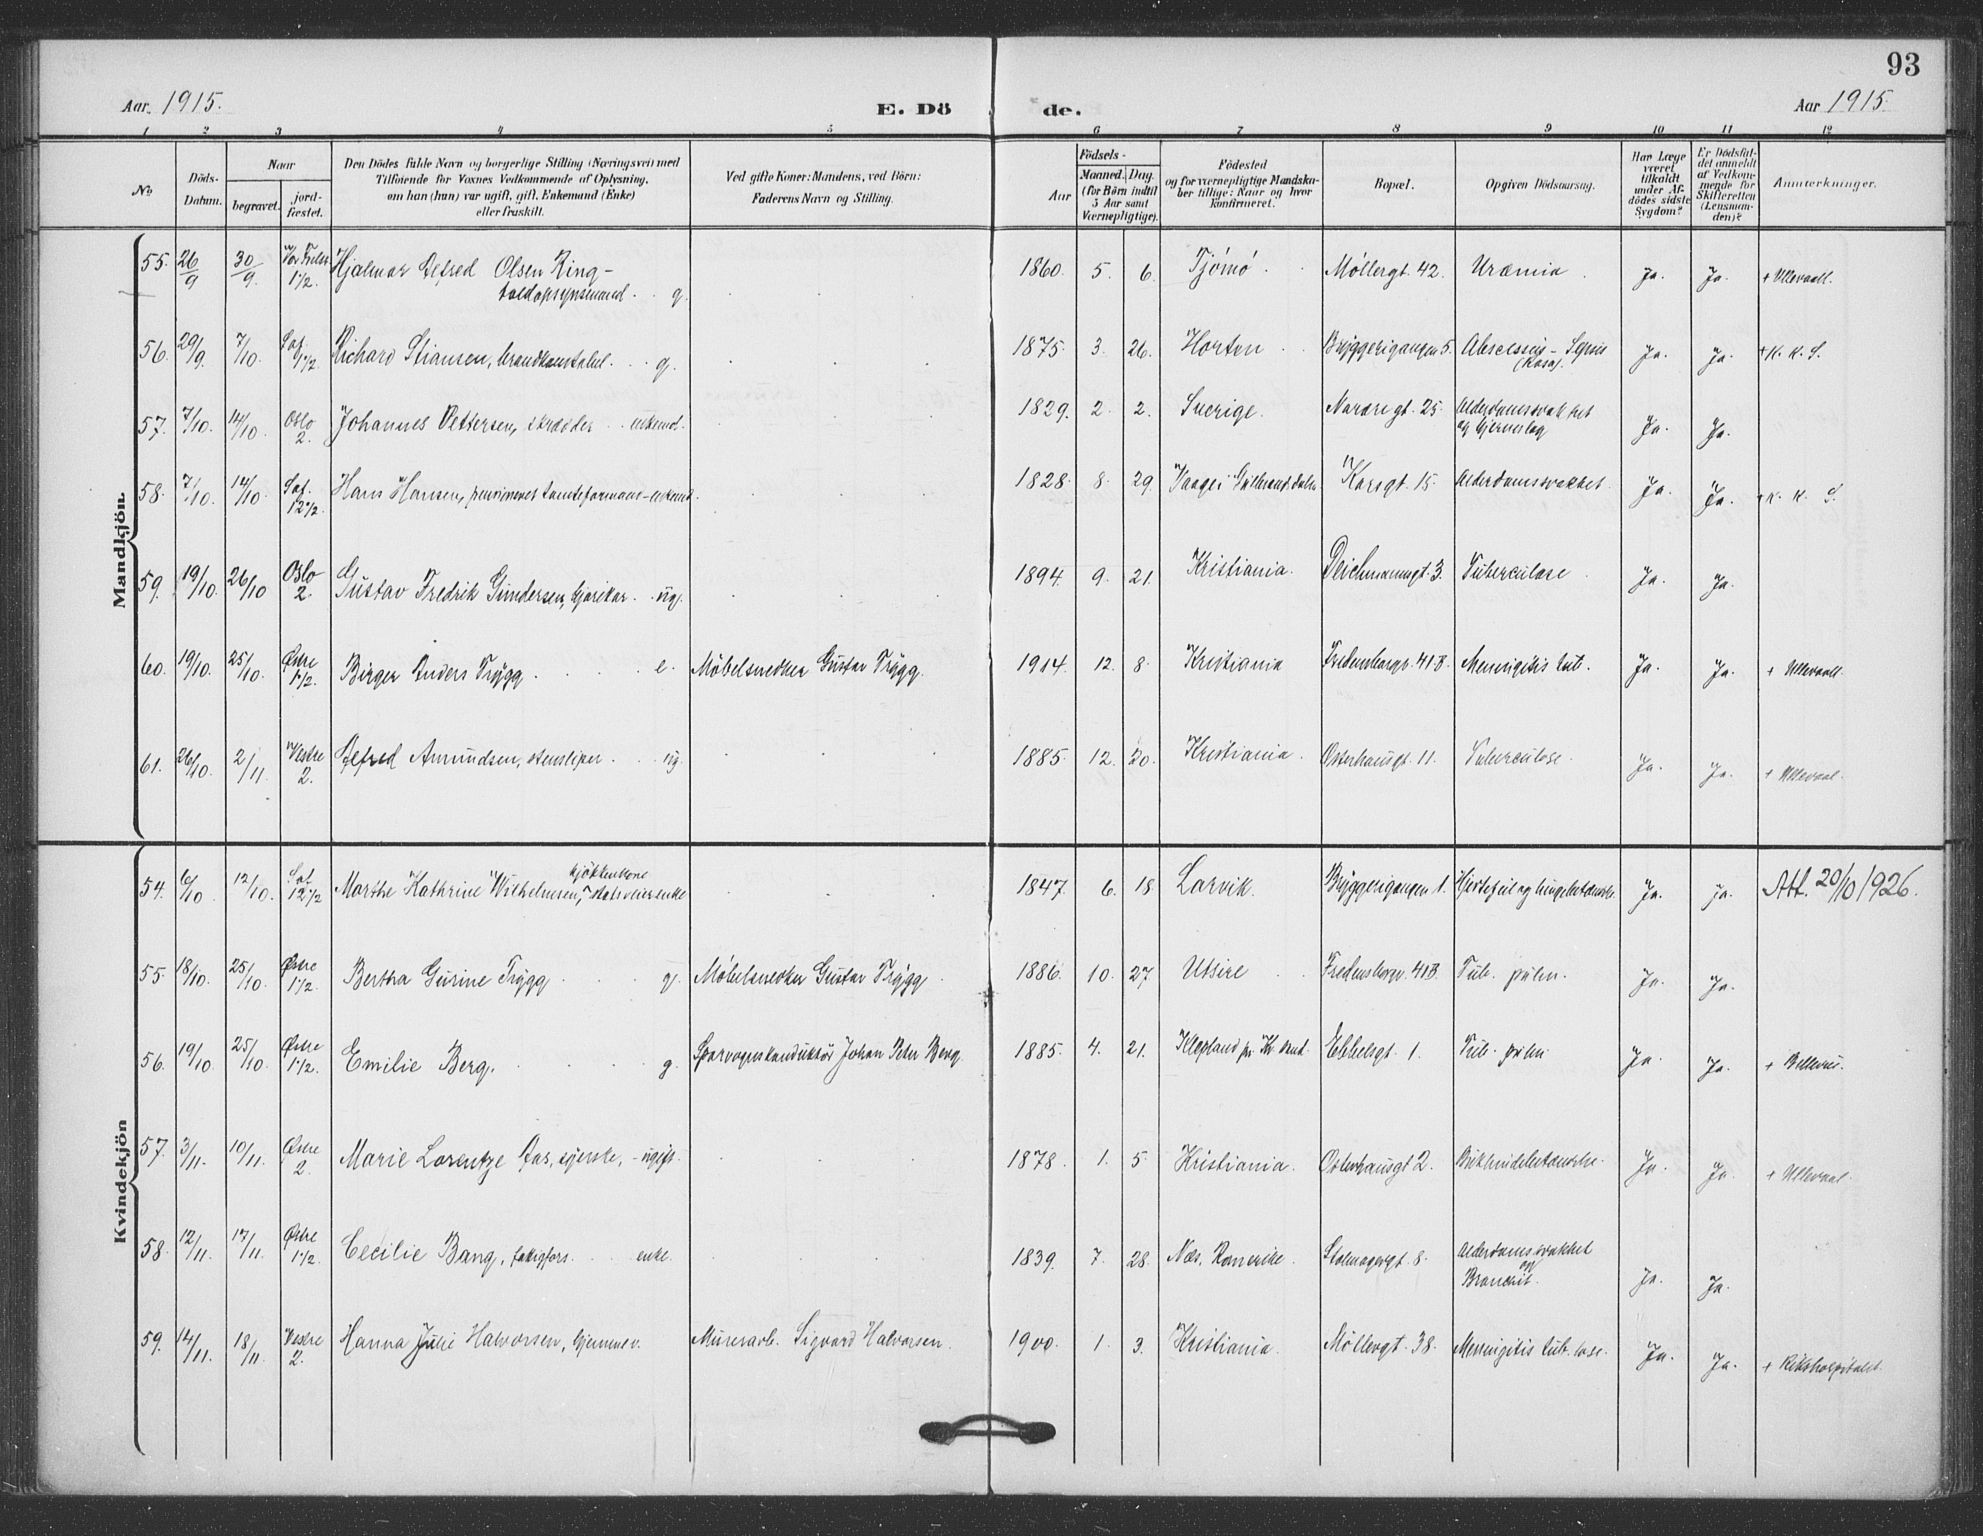 93
Aar 1915. E. Dö de. Aar 1915.
1 2 3 4 5 6 7 8 9 10 11 12
No
Döds-Datum.
Naar
begravet.
jord-fæstet.
Den Dödes fulde Navn og borgerlige Stilling (Næringsvei) med
Tilföiende for Voxnes Vedkommende af Oplysning,
om han (hun) var ugift, gift, Enkemand (Enke)
eller fraskilt.
Ved gifte Koner: Mandens, ved Börn:
Faderens Navn og Stilling.
Födsels-
Aar
Maaned. Dag.
(for Börn indtil
5 Aar samt
Værnepligtige).
Födested
og for værnepligtige Mandska-
ber tillige: Naar og hvor
konfirmeret.
Bopæl.
Opgiven Dödsaarsag.
Har Læge
været
tilkaldt
under Af-
dödes sidste
Sygdom?
Er Dödsfal-
det anmeldt
af Vedkom-
mende for
Skifteretten
(Lensman-
den)?
Anmærkninger.
Mandkjön.
55. 26/9 30/9. Vor Frelser 1 1/2. Hjalmar Alfred Olsen Ring- toldopsynsmand . . g. 1860. 5. 6. Tjömö. Möllergt. 42. Uræmia. Ja. Ja. + Ullevaall.
56. 29/9. 7/10. Richard Stiansen, brandkonstabel. g. 1875. 3. 26. Horten Bryggerigangen 5. Sepsis Ja. Ja. + K. K. S.
57. 7/10. 14/10. Oslo 2. Johannes Pettersen, skrædder . . enkemd. 1829. 2. 2. Sverige. Nordregt. 25. Alderdomssvakhet og Hjerneslag Ja. Ja.
58. 7/10. 14/10. 12 1/2. Hans Hansen, pensioneret tomteformann-enkemd. 1828. 8. 29. Vaage i Gulbrandsdalen Korsgt. 15. Alderdomssvakhet. Ja. Ja. + K. K. S.
59. 19/10. 26/10 Oslo 2. Gustav Fredrik Gundersen, visekar . . ug. 1894. 9. 21. Kristiania. Deichmannsgt. 3. Tuberculose. Ja. Ja.
60. 19/10. 25/10. Östre 1 1/2. Birger Anders Trygg . . . e. Möbelsnedker Gustav Trygg. 1914. 12. 8. Kristiania Fredensborgv. 41 B. Meningitis tub. Ja. Ja. + Ullevaall.
61. 26/10. 2/11. Vestre 2. Alfred Amundsen, stensliper . . ug. 1885. 12. 20. Kristiania. Osterhausgt. 11. Tuberculose. Ja. Ja. + Ullevaal.
Kvindekjön
54. 6/10 12/10. 12 1/2 Marthe Kathrine Wilhelmsen, kjökkenkone, enke 1847. 6. 18 Larvik. Bryggerigangen 1. Hjertefeil og lungebetændelse. Ja. ja. Att. 20/10 1926.
55. 18/10. 25/10. Östre 1 1/2. Bertha Gurine Trygg . . . g. Möbelsnedker Gustav Trygg. 1886. 10. 27 Utsire Fredensborgv. 41B. Tub. pulm. Ja. Ja.
56. 19/10. 25/10. Östre 1 1/2. Emilie Berg. . . . g. Sporvognskonduktör Johan Peter Berg. 1885. 4. 21. Ebbelsgt. 1. Tub. pulm. Ja. Ja. + Bellevue.
57. 3/11. 10/11. Östre 2. Marie Lorentze Aas, syerske, - ugift. 1878. 1. 5. Kristiania. Osterhausgt 2. Ja. Ja. + Ullevaal.
58. 12/11. 17/11. Östre 1 1/2. Cecilie Bang, fattigfors. . . enke. 1839. 7. 28. Næs, Romerike. Stolmagergt. 8. Alderdomssvakhet og Bronchit. Ja. Ja.
59. 14/11. 18/11 Vestre 2. Hanna Julie Halvorsen, hjemmev. Murerarb. Sigvard Halvorsen. 1900. 1. 3. Kristiania. Möllergt. 38. Meningitis tub. Ja. Ja. + Rikshospitalet.